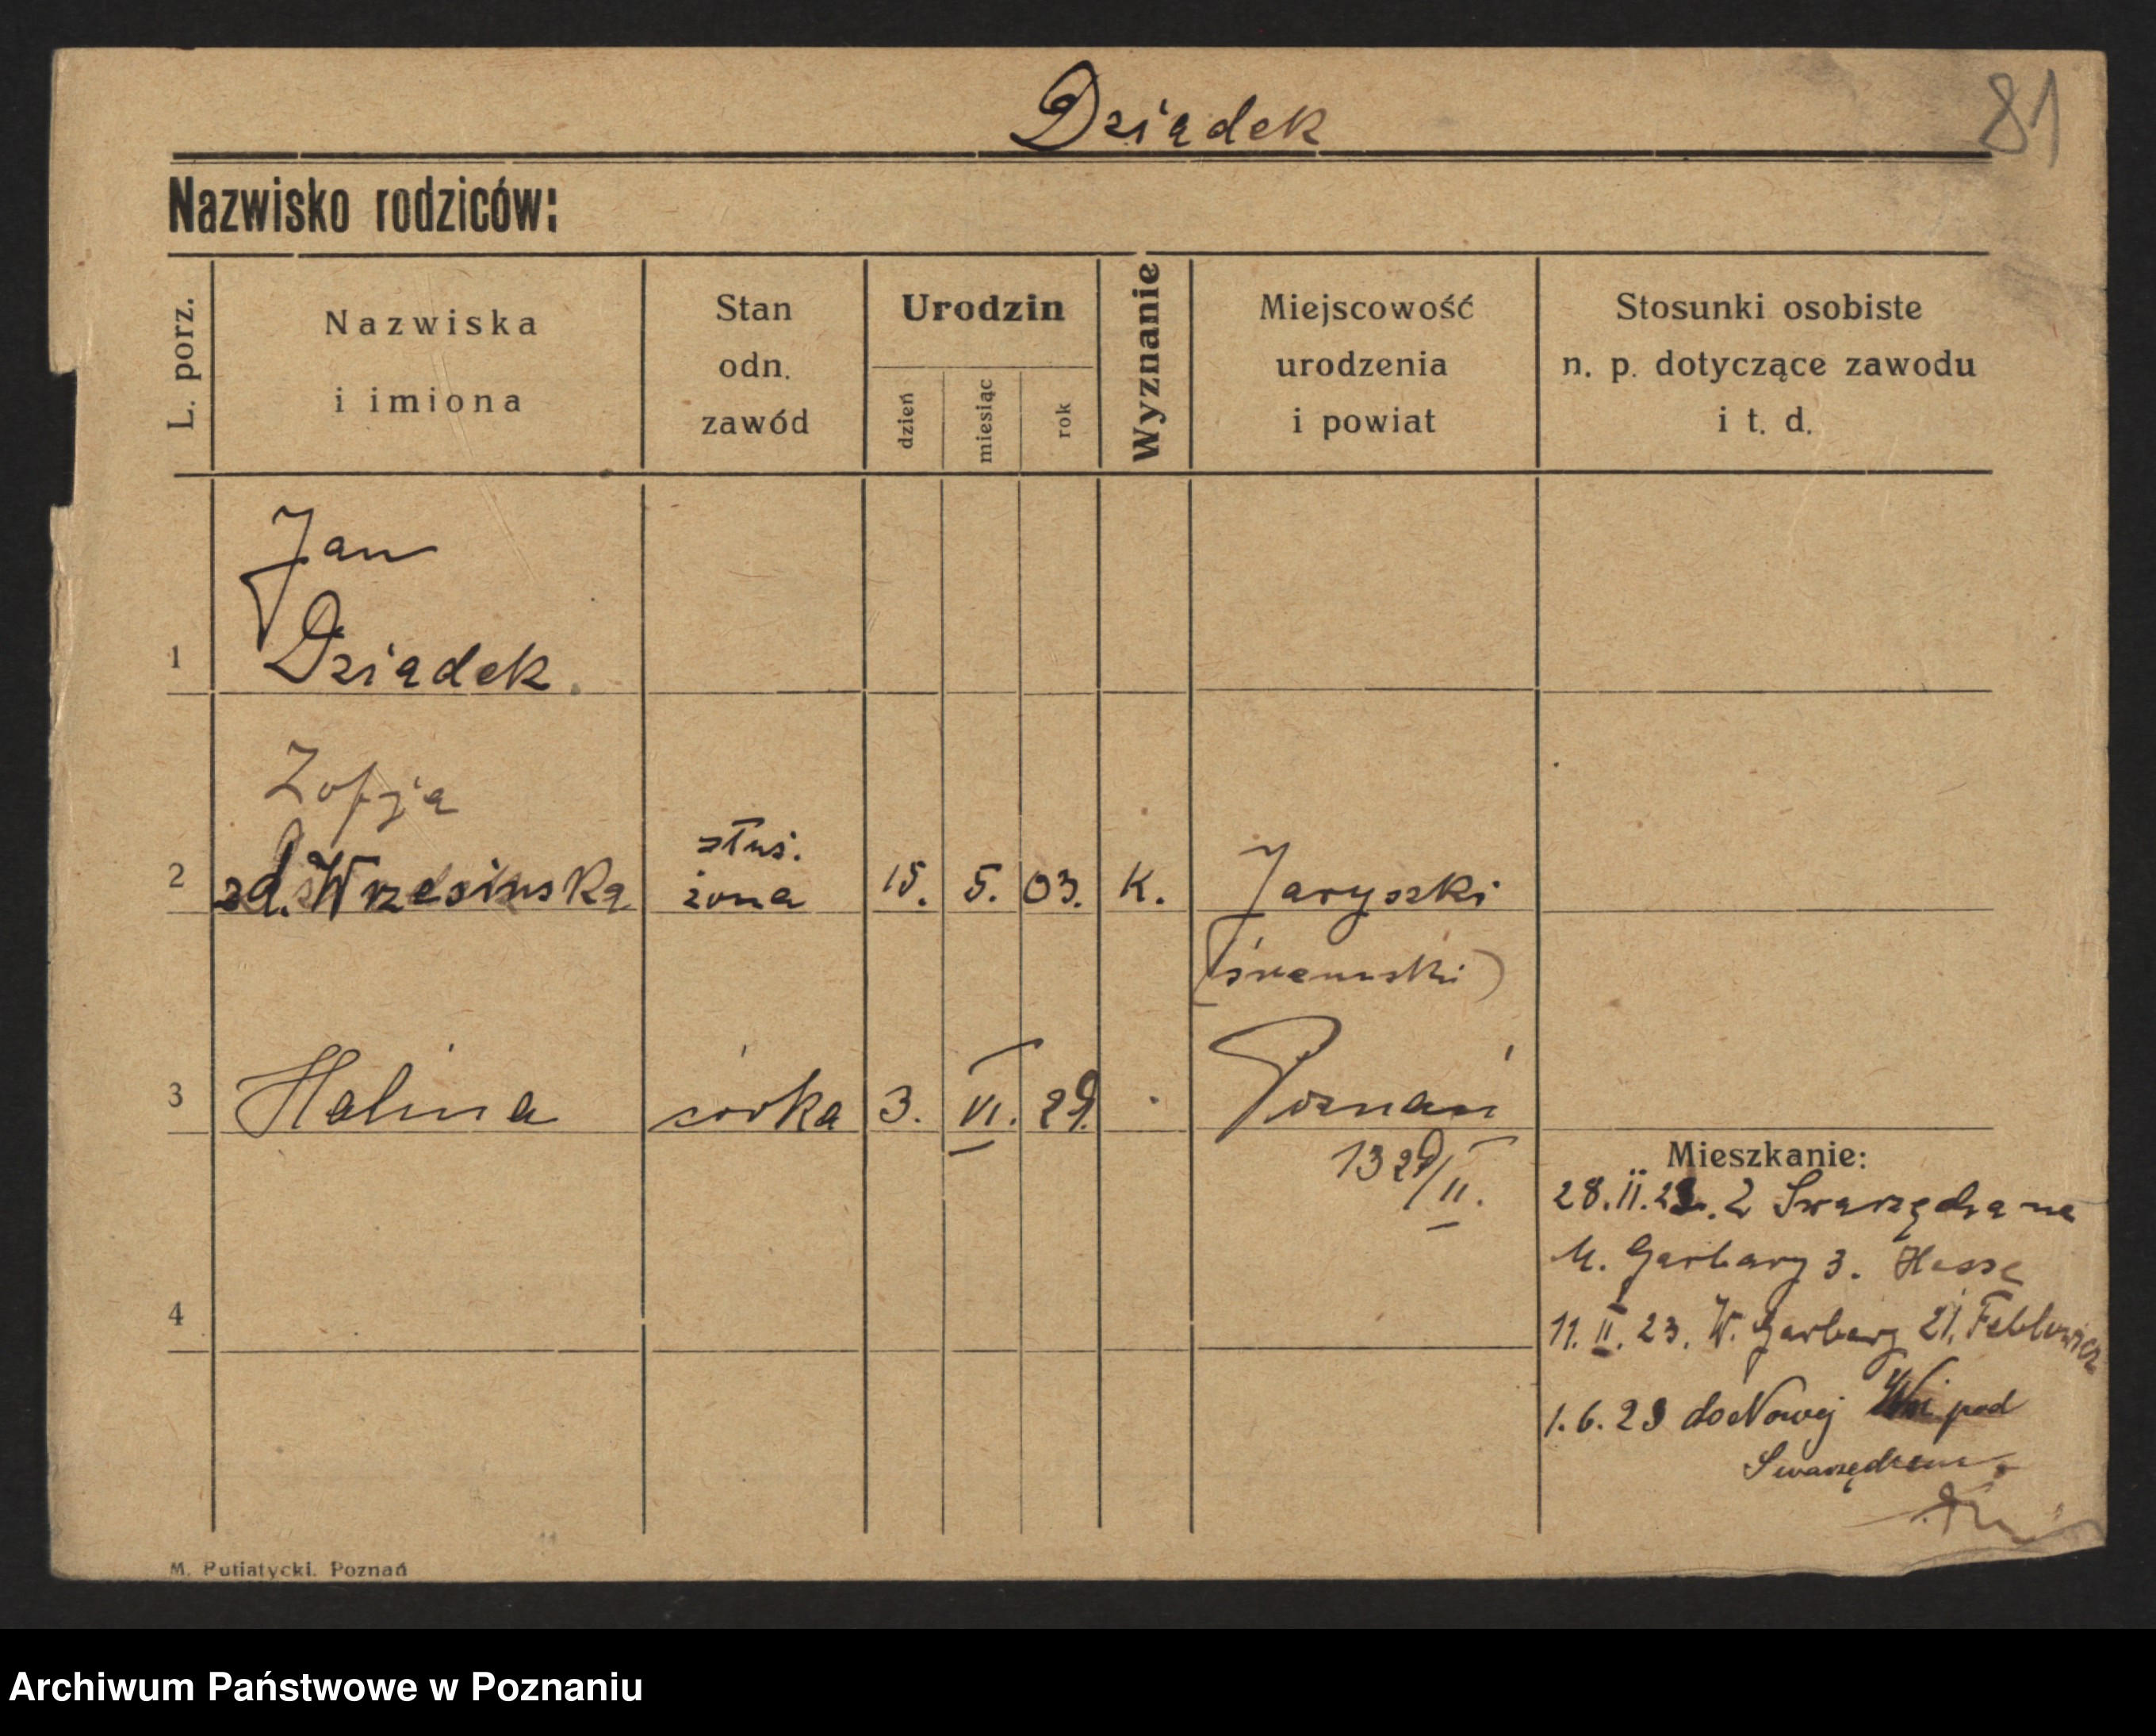 81
Dziadek
Nazwisko rodziców:
L. porz.
Nazwiska
i imiona
Stan
odn.
zawód
Urodzin
dzień
miesiąc
rok
Wyznanie
Miejscowość
urodzenia
i powiat
Stosunki osobiste
n. p. dotyczące zawodu
i t. d.
Jan
1 Dziadek
Zofja
służ.
2 zd. Wrzesińska żona 15. 5. 03. K. Jaryszki
(śremski)
3 Halina córka 3. VI. 29. Poznań
1329/II.
4
Mieszkanie:
28. II. Z Swarzędza na
M. Garbary 3. Hasse
11. II. 23. W. Garbary 21.
1. 6. 29 do Nowej Wsi pod
Swarzędzem.
M. Putiatycki. Poznań
Archiwum Państwowe w Poznaniu